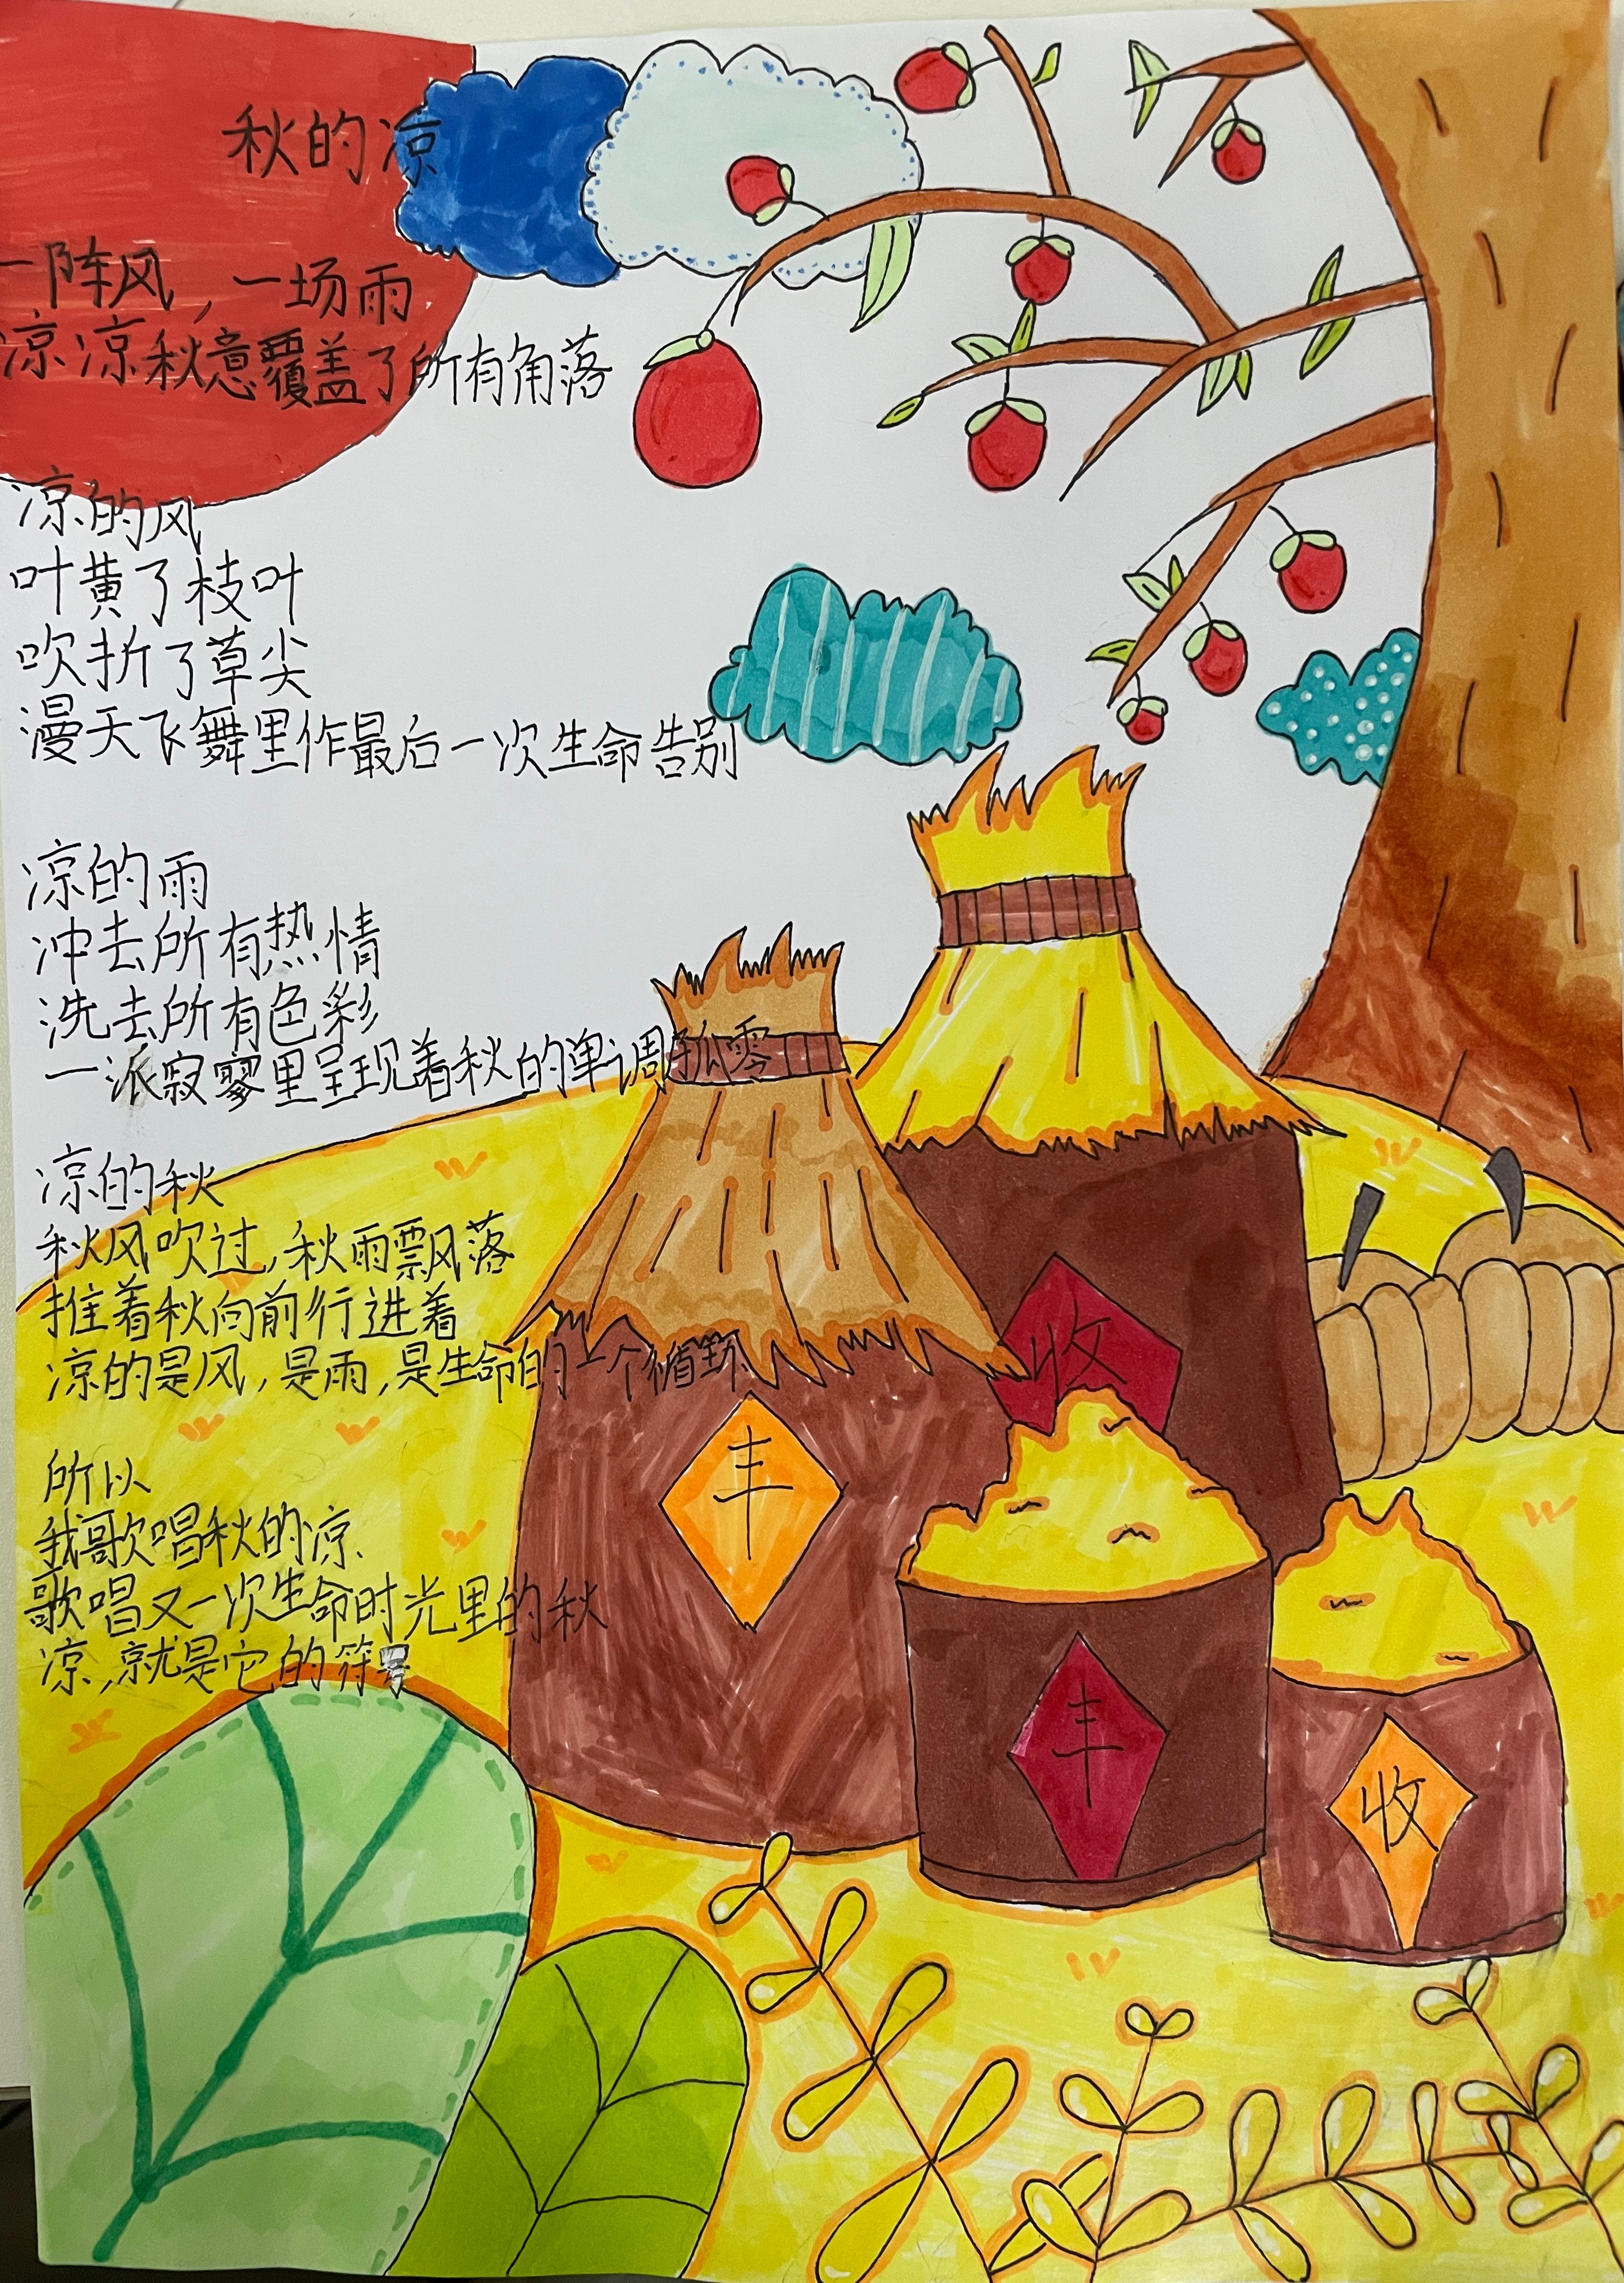 秋的凉
一阵风，一场雨
凉凉秋意覆盖了所有角落
凉的风
叶黄了枝叶
吹折了草尖
漫天飞舞里作最后一次生命告别
凉的雨
冲去所有热情
洗去所有色彩
一派寂寥里呈现着秋的单调孤零
凉的秋
秋风吹过，秋雨飘落
推着秋向前行进着
凉的是风，是雨，是生命的一个循环
所以
我歌唱秋的凉
歌唱又一次生命时光里的秋
凉，就是它的符号
收
丰
丰
收